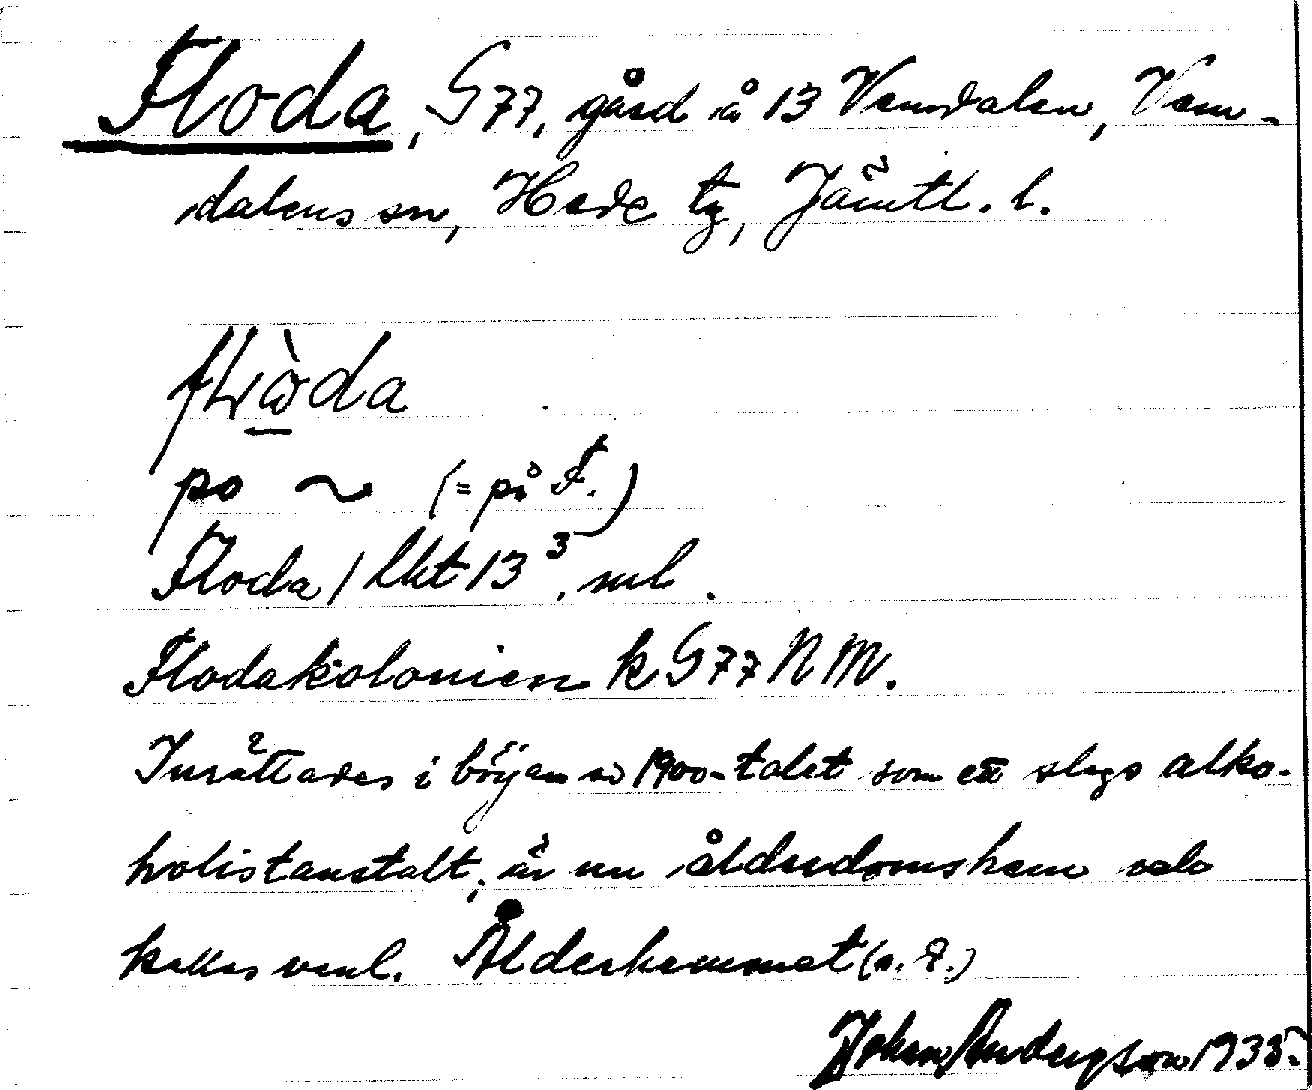 Floda, G77, gård å 13 Vemdalen, Vem-
dalens sn, Hede tg, Jämtl. l.
po ~ (= på F.)
Floda / lkt 13³, ml.
Flodakolonien k G77 N M.
Inrättades i början av 1900-talet som ett slags alko-
holistanstalt, är nu ålderdomshem och
kallas vanl. Ålderhemmet (a. &.)
John Anderson 1935.